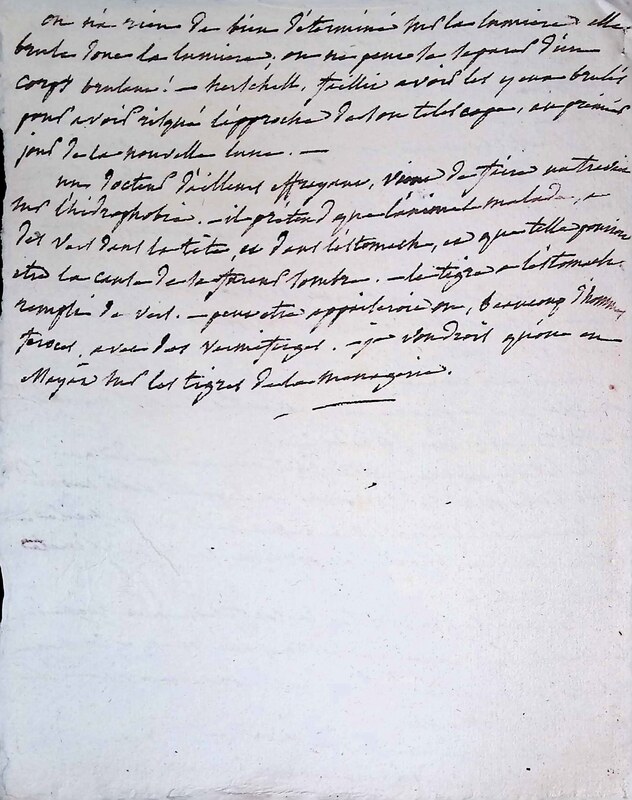 on n'a rien de bien déterminé sur la lumiere elle
brule donc la lumiere. on ne peut la separer d'un
corps brulant! — herschell, faillit avoir les yeux brulés
pour avoir risqué l'approche de son telescope, au premier
jour de la nouvelle lune. —
un docteur d'ailleurs effrayant, vient de faire un traité
sur l'hidrophobie. — il prétend que l'animal malade, a
des vers dans la tête, et dans l'estomach, et que telle pourroit
etre la cause de sa fureur sombre. — le tigre a l'estomach
rempli de vers. — peut etre appaiseroit on, beaucoup d'hommes
feroces, avec des vermifuges. — je voudrois qu'on en
essayat sur les tigres de la menagerie.